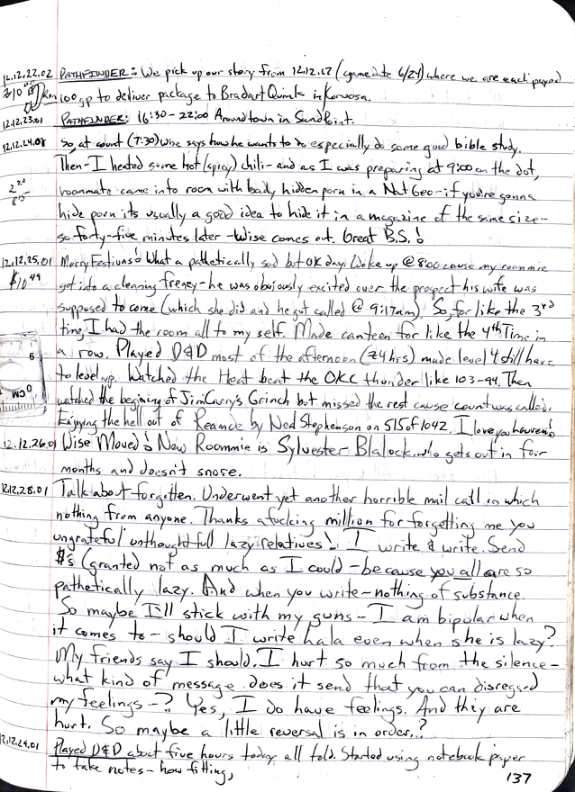 12.12.22.02 PATHFINDER: We pick up our story from 12.12.17 (game date 6/24) where we are each payed
100 gp to deliver package to Bradart Quink in Korvosa.
12.12.23.01 PATHFINDER: 16:30-22:00 Around town in Sandpoint.
12.12.24.01 So at count (7:30) Wise says how he wants to do especially do some good bible study.
Then - I heated some hot (spicy) chili - and as I was preparing at 9:00 on the dot,
roommate came into room with badly hidden porn in a Nat Geo - if you're gonna
hide porn its usually a good idea to hide it in a magazine of the same size -
so forty-five minutes later - Wise comes out. Great B.S.!
12.12.25.01 Merry Festivus! What a pathetically sad but OK day. Woke up @ 8:00 cause my roomie
$10.49 got into a cleaning frenzy - he was obviously excited over the prospect his wife was
supposed to come (which she did and he got called @ 9:17am). So, for like the 3rd
time, I had the room all to my self. Made canteen for like the 4th Time in
a row. Played D&D most of the afternoon (≈4 hrs) made level 4 still have
to level up. Watched the Heat beat the OKC thunder like 103-94. Then
watched the begining of Jim Carry's Grinch but missed the rest cause count was called.
Enjoying the hell out of Reamde by Ned Stephenson on 515 of 1042. I love you
12.12.26.01 Wise Moved! New Roommie is Sylvester Blalock who gets out in four
months and doesn't snore.
12.12.28.01 Talk about forgotten. Underwent yet another horrible mail call in which
nothing from anyone. Thanks a fucking million for forgetting me you
ungrateful unthoughtfull lazy relatives! I write & write. Send
$'s (granted not as much as I could - because you all are so
pathetically lazy. And when you write - nothing of substance.
So maybe I'll stick with my guns - I am bipolar when
it comes to - should I write hala even when she is lazy?
My friends say I should. I hurt so much from the silence -
what kind of message does it send that you can disregard
my feelings -? Yes, I do have feelings. And they are
hurt. So maybe a little reversal is in order.?
12.12.29.01 Played D&D about five hours today all told. Started using notebook paper
to take notes - how fitting,
137